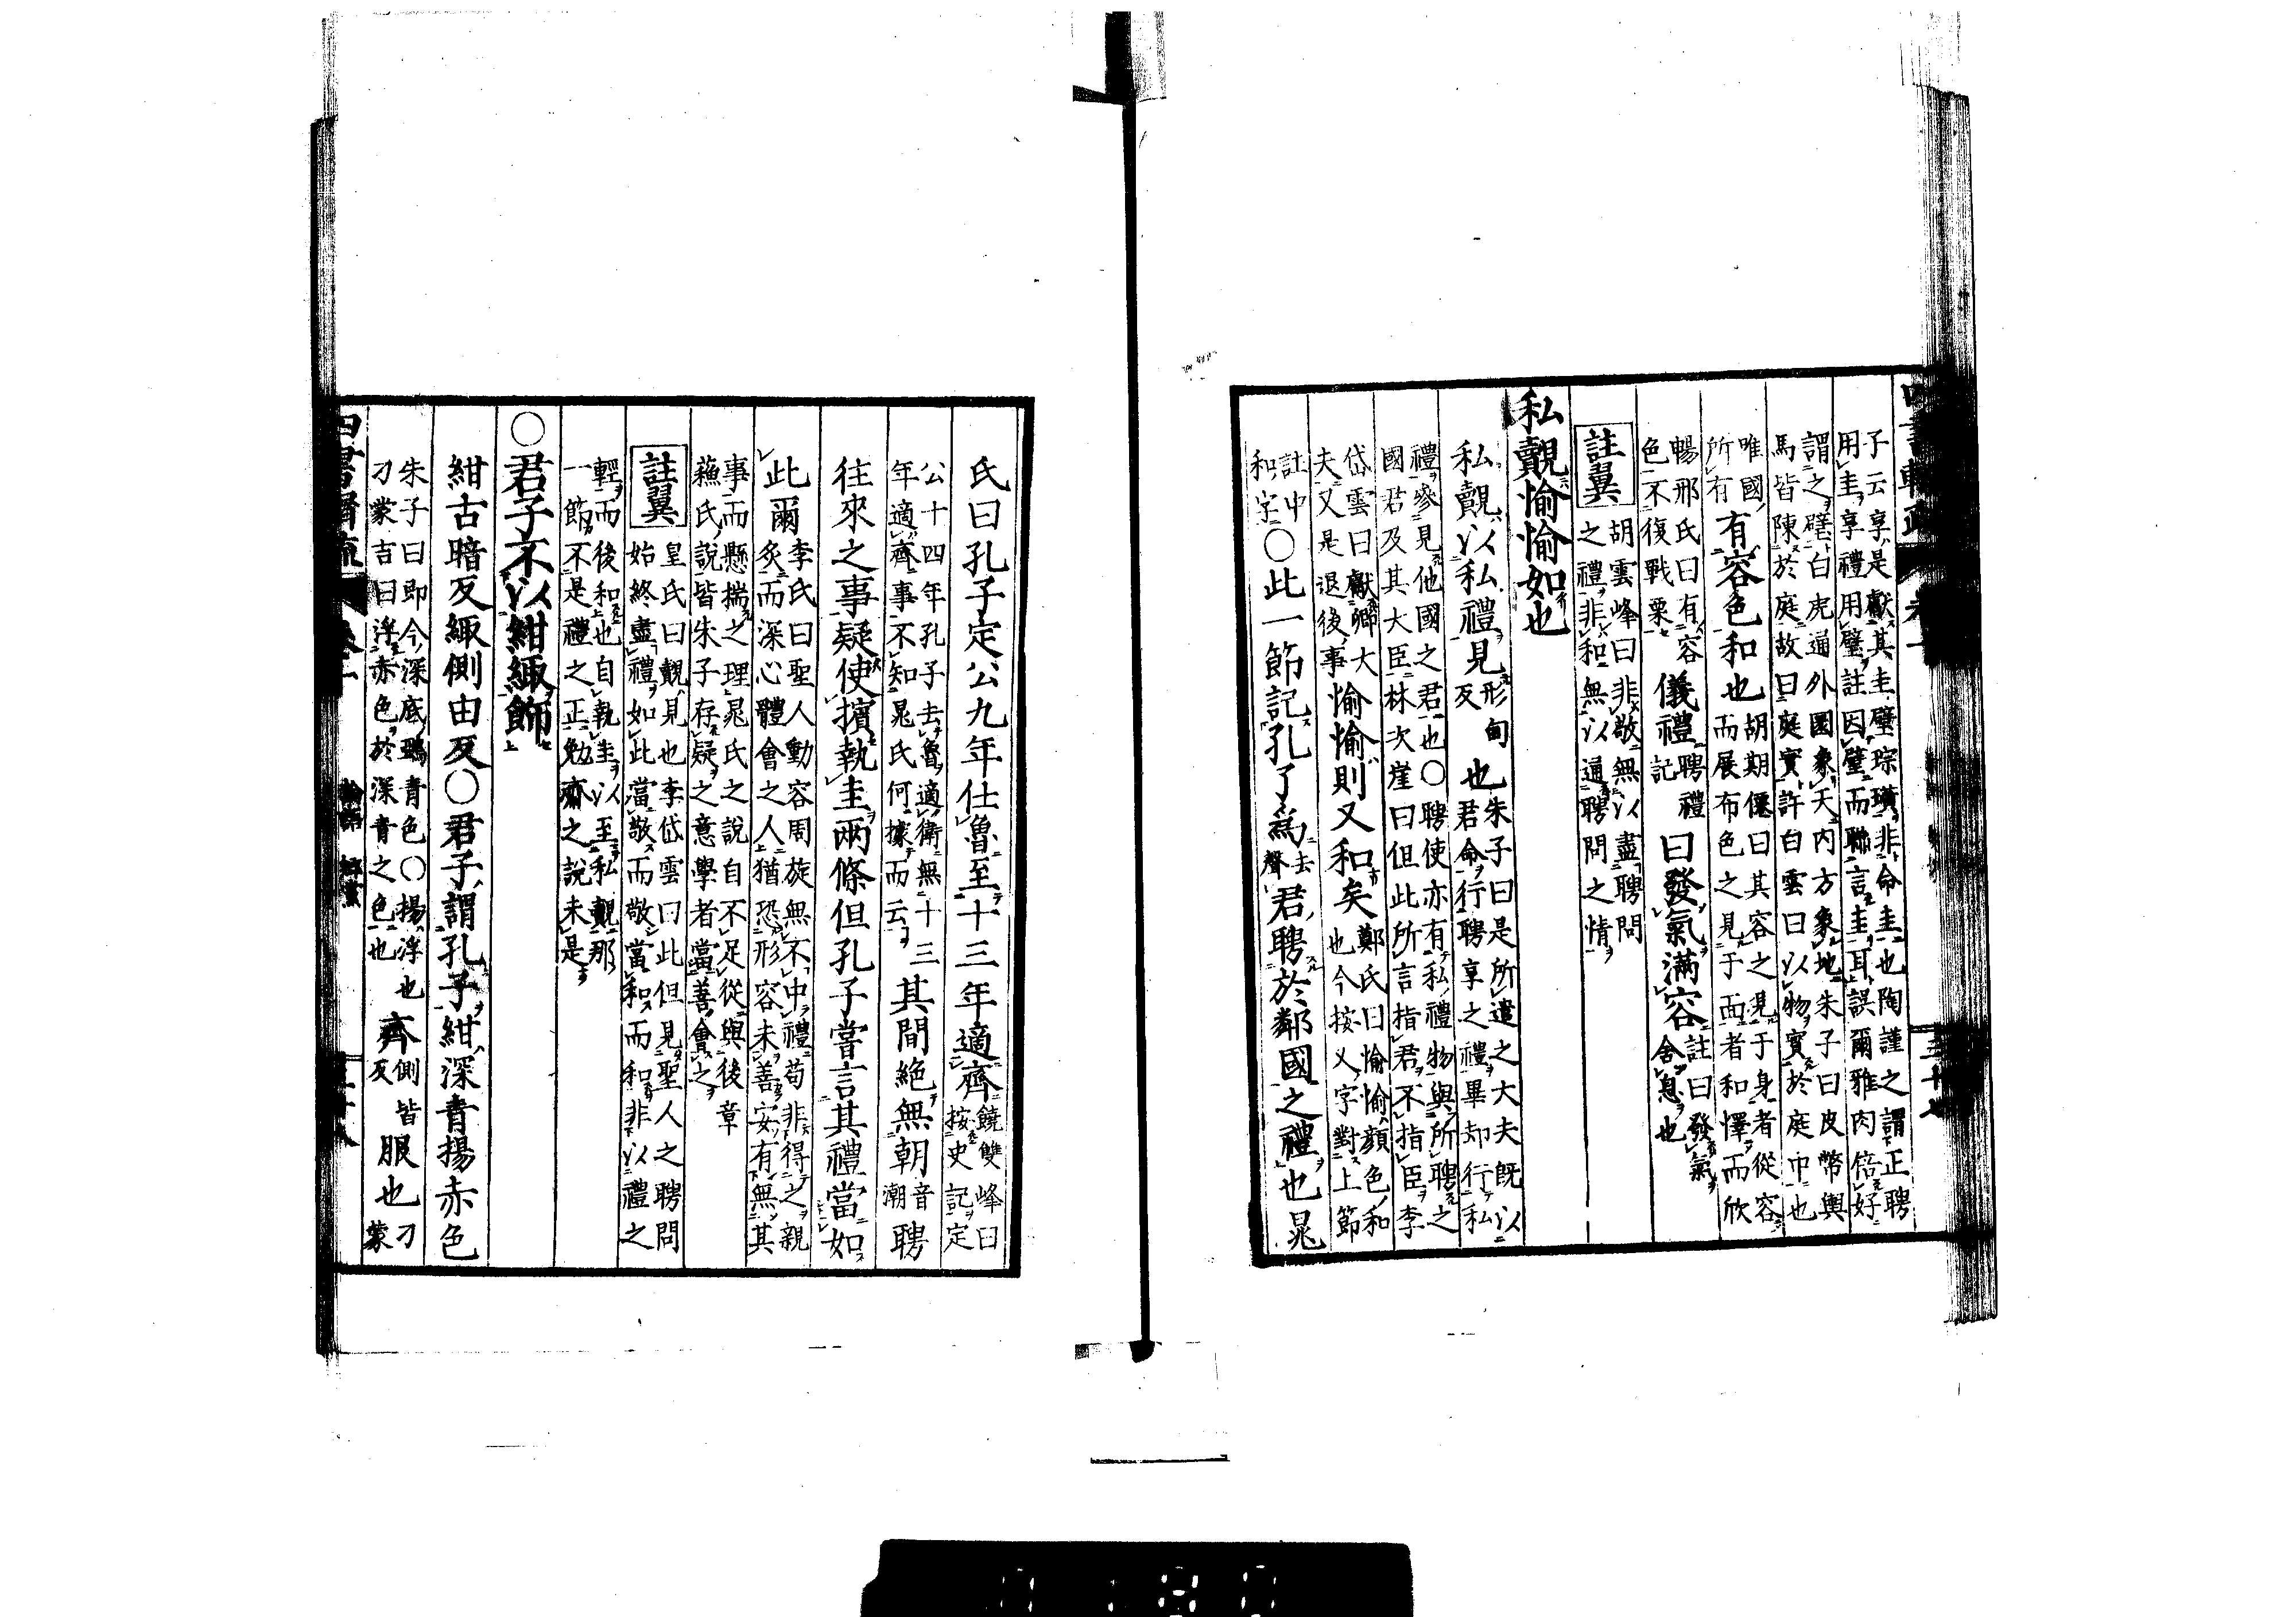 子云享是獻其圭璧琮璜非命圭也陶謹之謂正聘
用圭享禮用璧註因璧而聯言圭耳誤爾雅肉倍好
謂之璧白虎通外圜象天內方象地朱子曰皮幣輿
馬皆陳於庭故曰庭實許白雲曰以物實於庭中也
唯國所有 有容色和也 胡期僊曰其容之見于身者從容
而展布色之見于面者和懌而欣
暢邢氏曰有容
色不復戰栗 儀禮 聘禮記 曰發氣滿容 註曰發氣
舍息也
註翼 胡雲峰曰非敬無以盡聘問
之禮非和無以通聘問之情
私覿愉愉如也
私覿以私禮見 形甸反 也 朱子曰是所遣之大夫既以
君命行聘享之禮畢却行私
禮參見他國之君也○聘使亦有私禮物與所聘之
國君及其大臣林次崖曰但此所言指君不指臣李
岱雲曰獻卿大
夫又是退後事 愉愉則又和矣 鄭氏曰愉愉顏色和
也今按又字對上節
註中
和字 ○此一節記孔子爲 去聲 君聘於鄰國之禮也晁
氏曰孔子定公九年仕魯至十三年適齊 饒雙峰曰
按史記定
公十四年孔子去魯適衛無十三
年適齊事不知晁氏何據而云 其間絕無朝 音潮 聘
往來之事疑使擯執圭兩條但孔子嘗言其禮當如
此爾 李氏曰聖人動容周旋無不中禮苟非得之親
炙而深心體會之人猶恐形容未善安有無其
事而懸揣之理晁氏之說自不足從與後章
蘓氏說皆朱子存疑之意學者當善會之
註翼 皇氏曰覿見也李岱雲曰此但見聖人之聘問
始終盡禮如此當敬而敬當和而和非以禮之
輕而後和也自執圭以至私覿那
一節不是禮之正勉齋之說未是
○君子不以紺緅飾
紺古暗反緅側由反○君子謂孔子紺深青揚赤色
朱子曰即今深底鵶青色○揚浮也
刁蒙吉曰浮赤色於深青之色也 齊 側皆反 服也 刁蒙